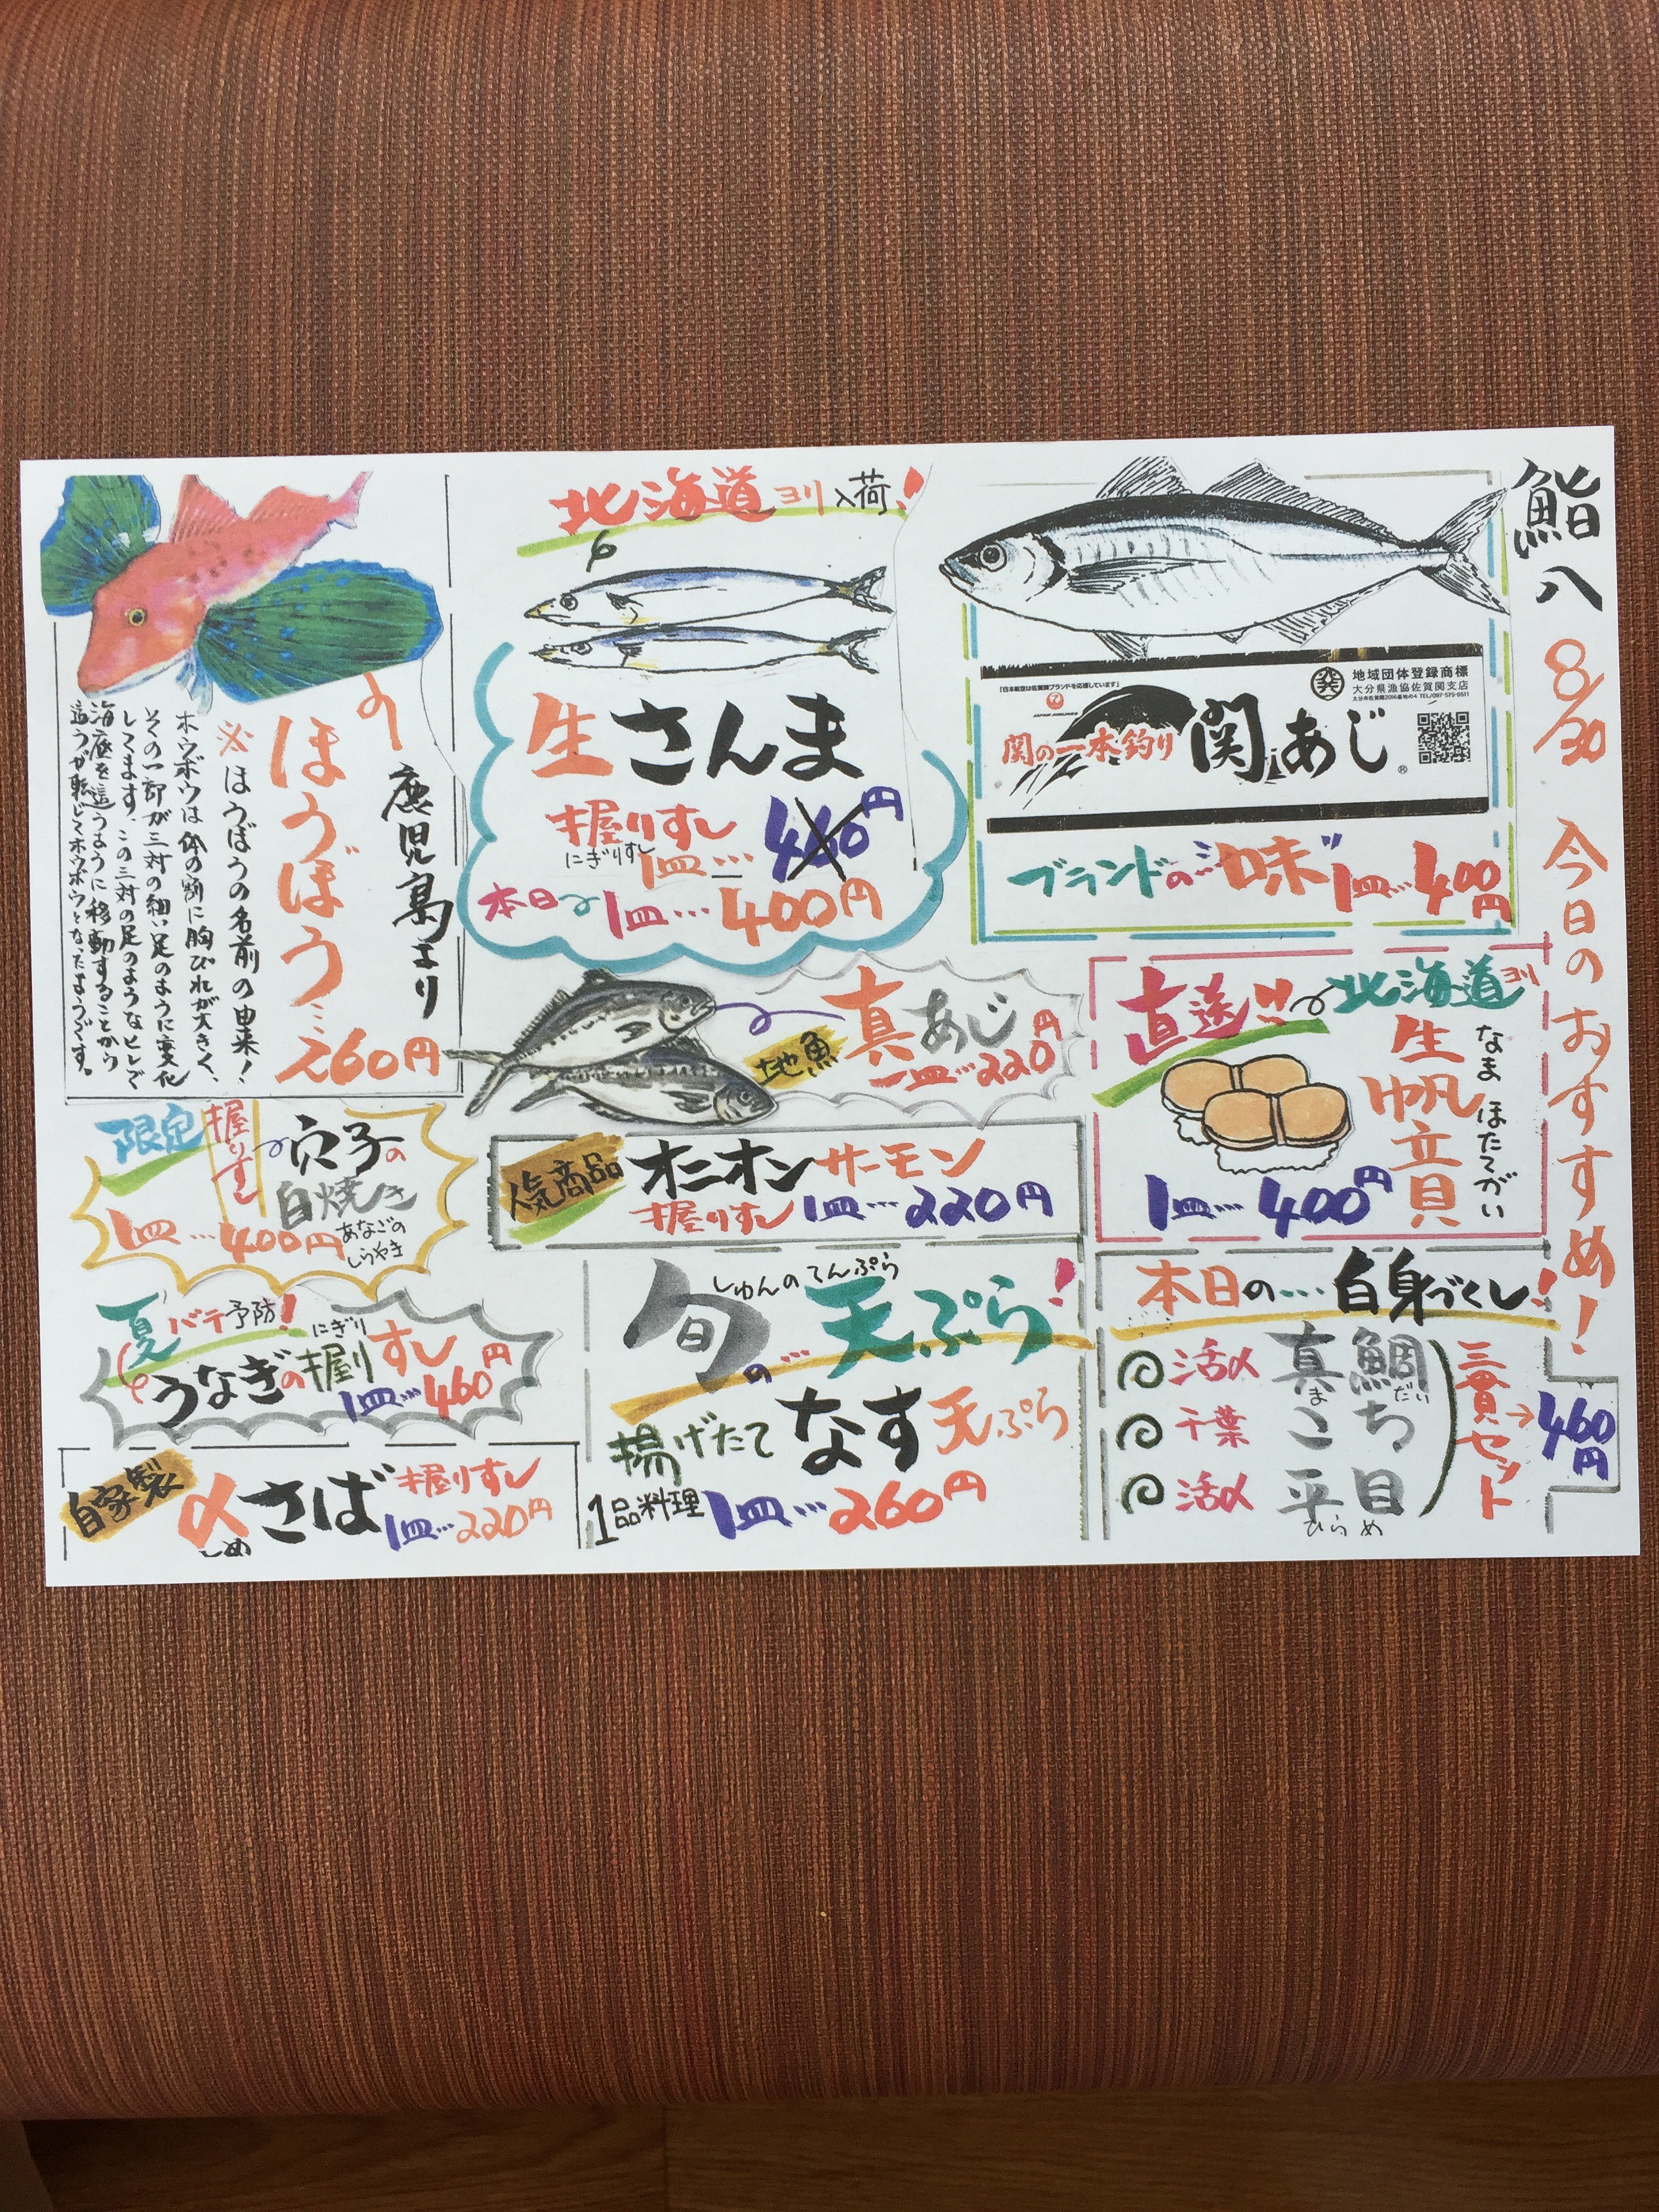 鮨八 8/30 今日のおすすめ!
地域団体登録商標
大分県漁協佐賀関支店
関の一本釣り 関あじ
ブランドの"味" 1皿…400円
北海道ヨリ入荷!
生さんま
握りすし 460円
にぎりすし 1皿…
本日 1皿…400円
鹿児島より
ほうぼう…260円
※ほうぼうの名前の由来!
ホウボウは体の割に胸びれが大きく、
その一部が三対の細い足のように変化
してます。この三対の足のようなヒレで
海底を這うように移動することから
這うが転じてホウボウとなったようです。
直送!! 北海道ヨリ
なま ほたてがい
生帆立貝
1皿…400円
真あじ
地魚 一皿…220円
人気商品 オニオンサーモン
握りすし 1皿…220円
限定 握りすし 穴子の
白焼き
あなごの
しらやき
1皿…400円
本日の…白身づくし!
活〆 真鯛
まだい
千葉 こち
活〆 平目
ひらめ
三貫セット→460円
しゅんのてんぷら
旬の…天ぷら!
揚げたて なす天ぷら
1品料理 1皿…260円
夏バテ予防!
にぎり
うなぎの握りすし
1皿…460円
自家製 〆さば 握りすし
しめ 1皿…220円